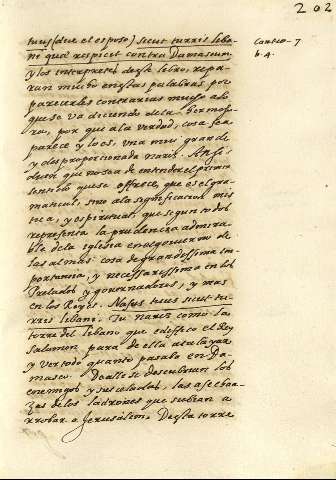 202
tuus (dice el esposo) sicut turris liba-
ni que respicit contra Damascum,
y los interpretes deste libro, repa-
ran mucho en estas palabras por
parecerles contrarias mucho a lo
que se va diciendo de la hermosu-
ra, por que a la verdad, cosa fea
parece y lo es, una muy grande
y desproporcionada nariz. Ansi
dicen que no se a de entender el primer
sentido que se offresce, que es el gra-
matical, sino a la significacion mis-
tica, y espiritual, que segun todos
representa la prudencia admira-
ble de la iglesia en el govierno de
las almas cosa de grandissima im-
portancia, y necessarissima en los
Prelados y governadores, y mas
en los Reyes. Nasus tuus sicut tu-
rris libano. Tu nariz como la
torre del libano que edifico el Rey
Salomon para de ella atalayar
y ver todo quanto pasaba en Da-
masco. De alli se descubrian los
enemigos y sus celadas, las asechan-
zas de los ladrones que subian a
rrobar a Jerusalem. Desta torre
Cantico-7
b.4.